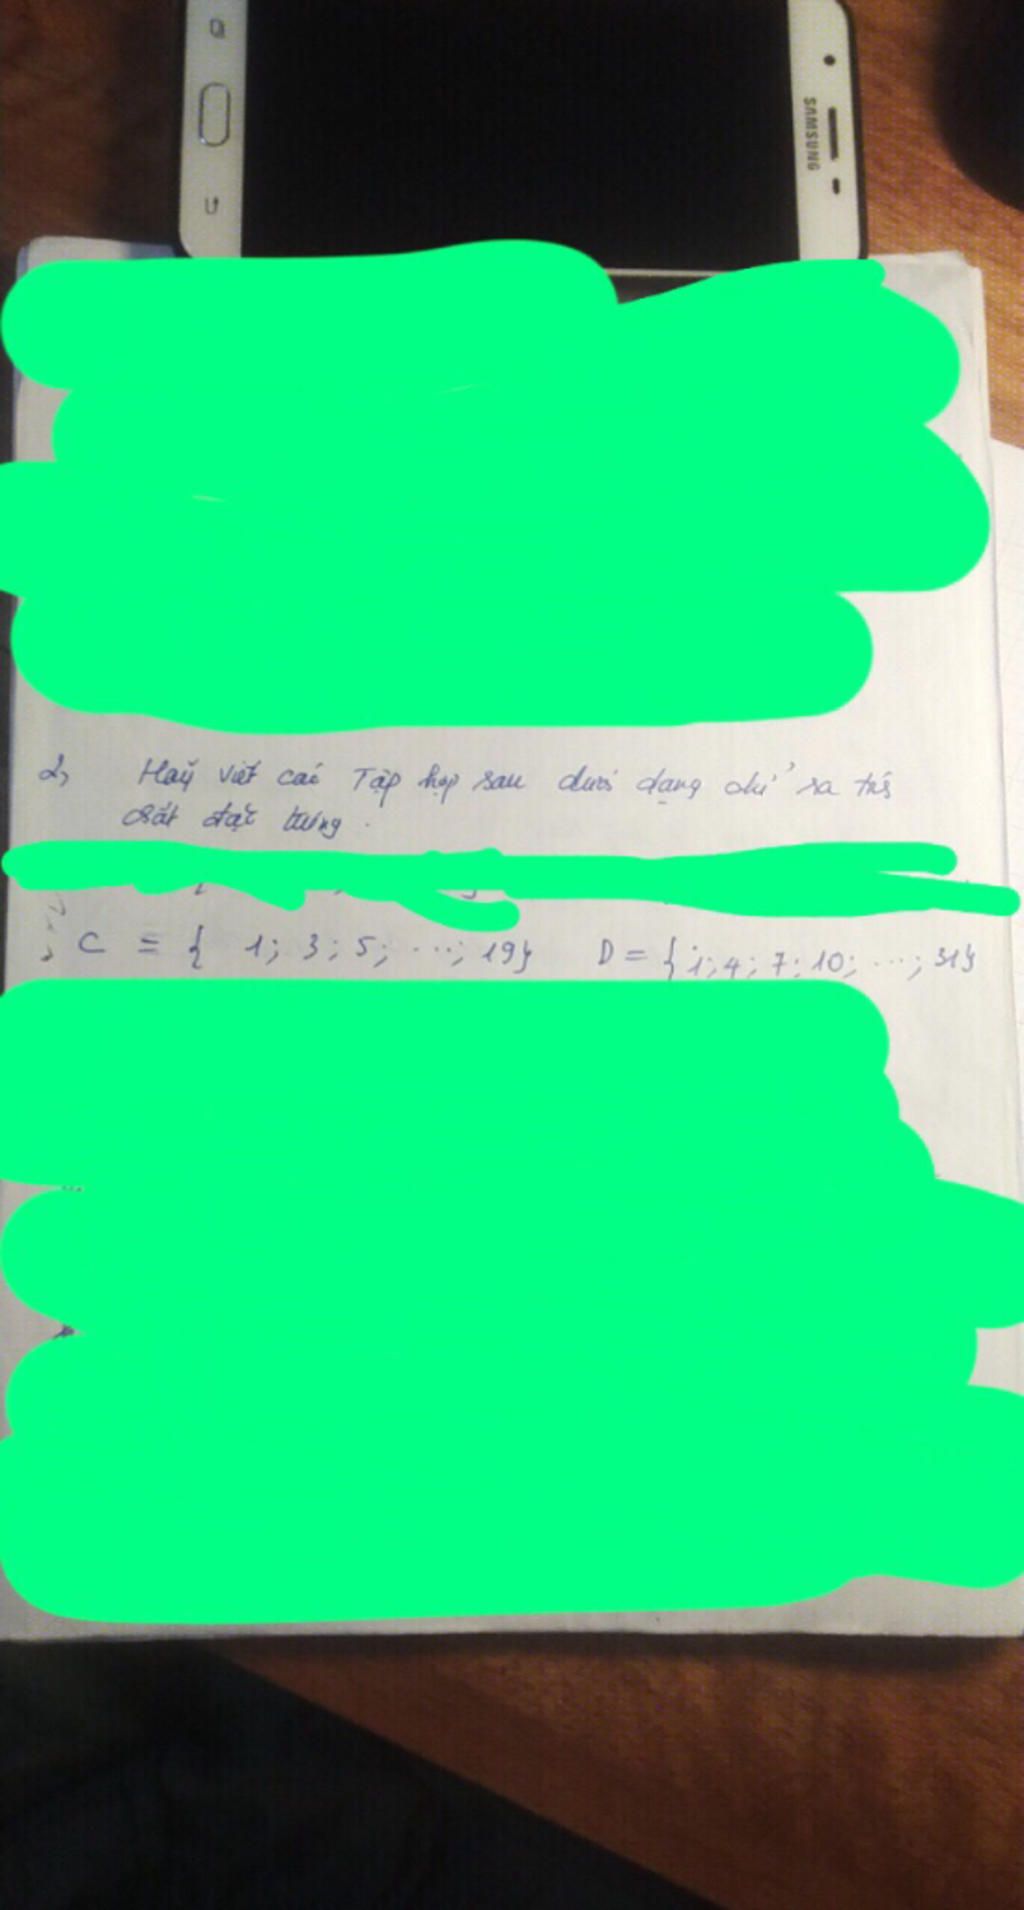 SAMSUNG
2, Hãy viết các Tập hợp sau dưới dạng chỉ ra tính
chất đặc trưng.
C = { 1; 3; 5; ...; 19}   D = { 1; 4; 7; 10; ...; 31}